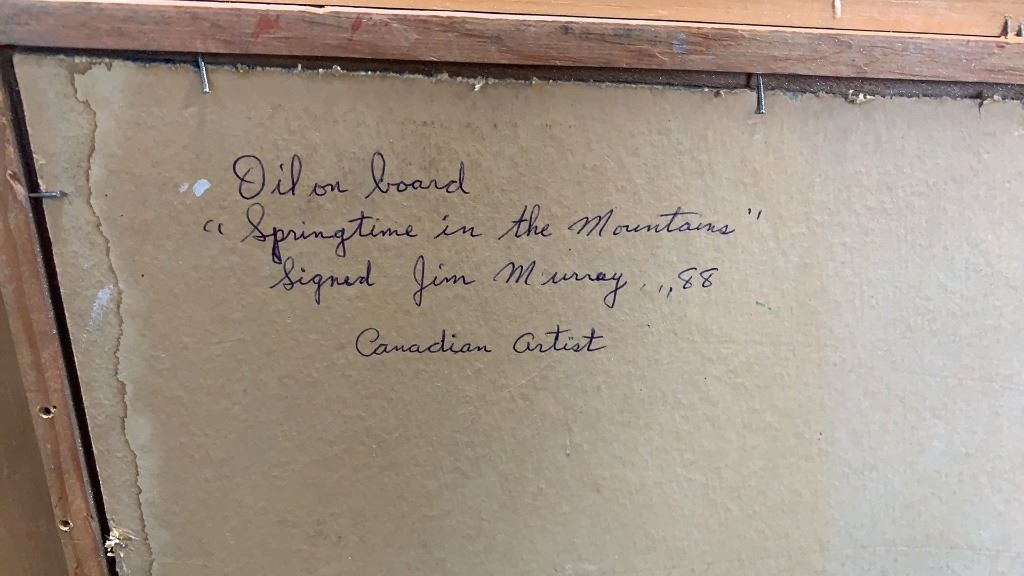 Oil on board
"Springtime in the Mountains"
Signed Jim Murray . ,,, 88
Canadian Artist